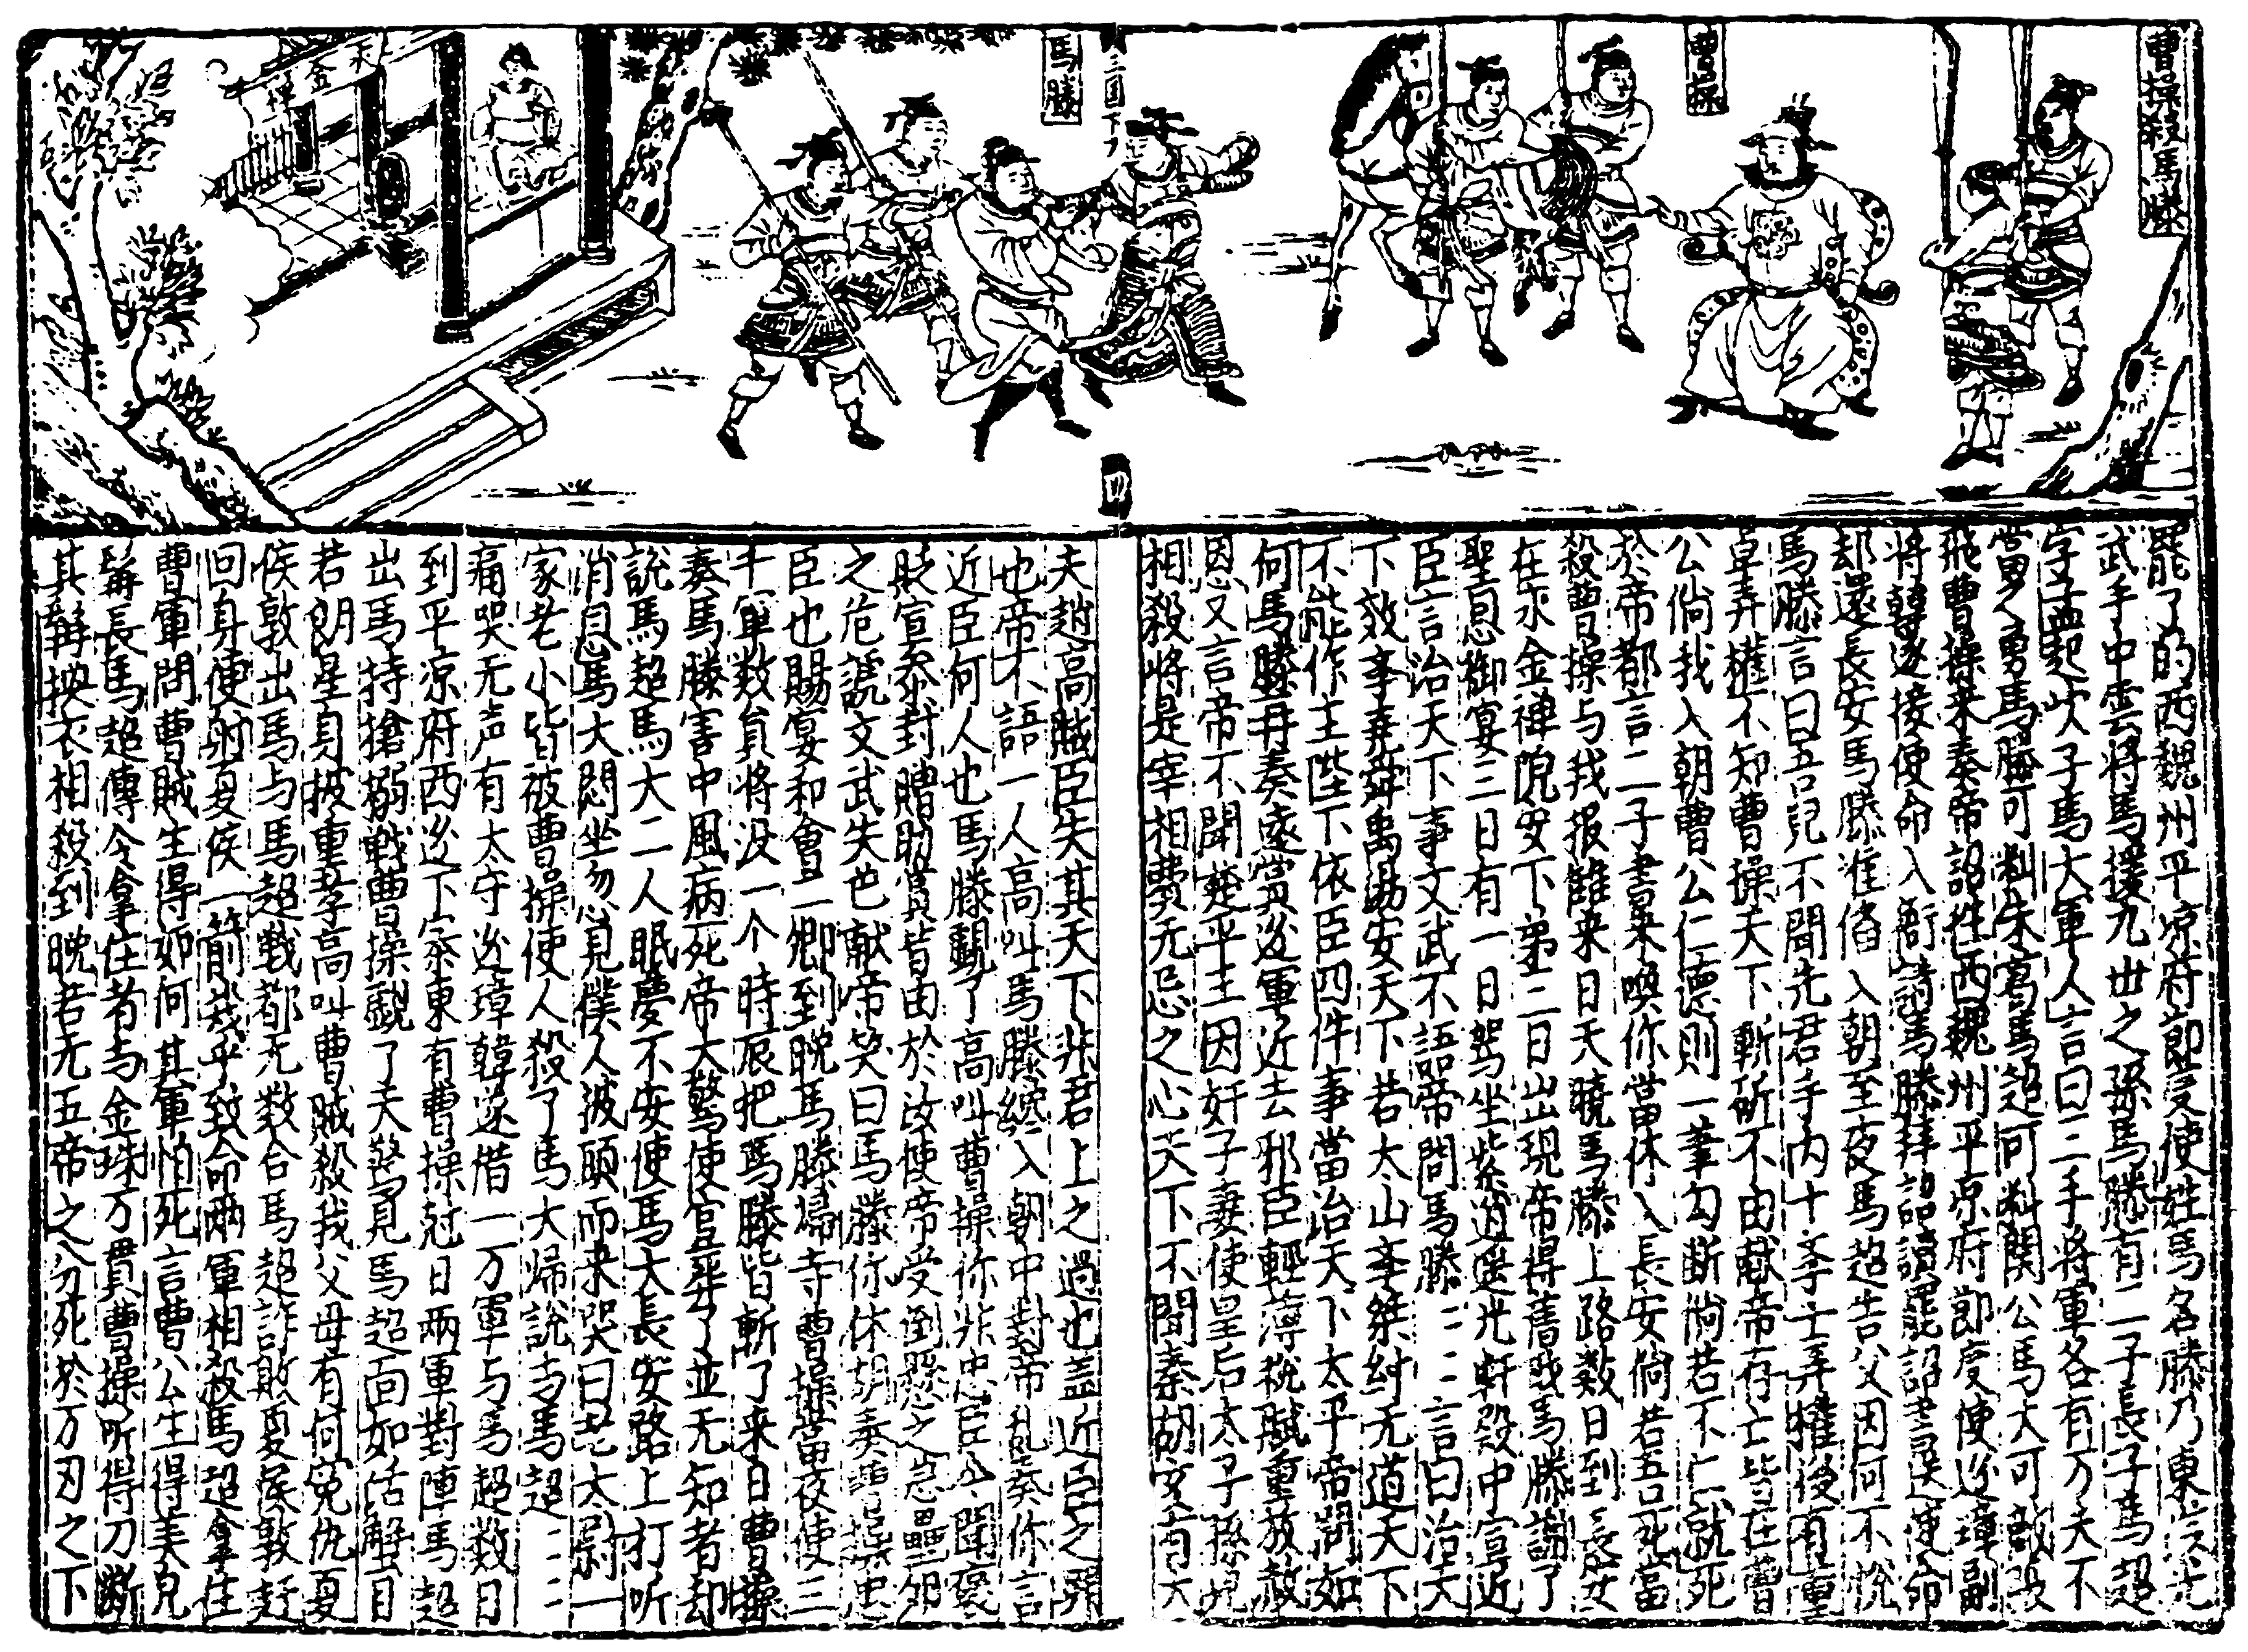 曹操殺馬騰
曹操
三国下
馬騰
永金禅
四
罷了的西魏州平凉府節度使姓馬名騰乃東漢光
武手中雲将馬援九世之孫馬騰有二子長子馬超
字子孟起次子馬大軍人言曰二手將軍各有万夫不
當之勇馬騰可料朱寓馬超可料関公馬大可敵張
飛曹操来奏帝詔往西魏州平凉府節度使边璋副
将韓遂接使命入衙請馬騰拜詔讀罷詔書送使命
却還長安馬騰准俻入朝至夜馬超告父因何不悅
馬騰言曰吾兒不聞先君手内十常士弄權後有董
卓弄權不知曹操天下斬斫不由献帝存亡皆在曹
公倘我入朝曹公仁德則一筆勾断倘若不仁就死
於帝都言二子書来喚你當休入長安倘若吾死當
殺曹操与我报讎来日天曉馬騰上路数日到長安
在永金禅院安下第二日出現帝得舊我馬騰謝了
聖恩御宴三日有一日駕坐紫逍遥光軒殿中宣近
臣言治天下事文武不語帝問馬騰〻〻言曰治天
下效李堯舜禹湯安天下若太山李桀紂无道天下
不能作主陛下依臣四件事當治天下太平帝問如
何馬騰再奏遠賞边軍近去邪臣輕薄税賦重放赦
恩又言帝不聞楚平王因奸子妻使皇后太子孫
相殺将是宰相費无忌之心天下不聞秦胡亥内大
夫趙高賊臣失其天下非君上之過也盖近臣之弱
也帝不語一人高叫馬騰纔入朝中對帝乱奏你言
近臣何人也馬騰觀了高叫曹操你非忠臣今聞褒
貶宣泰封贈賜賞皆由於汝使帝受倒懸之急壘卵
之危諕文武失色献帝笑曰馬騰你休胡奏曹操忠
臣也賜宴和會二卿到晚馬騰歸寺曹操當夜使三
千軍数員将没一个時辰把馬騰皆斬了来日曹操
奏馬騰害中風病死帝大驚使官葬了並无知者却
說馬超馬大二人眠夢不安使馬大長安路上打听
消息馬大悶坐忽見僕人披頭而来哭曰老太尉一
家老小皆被曹操使人殺了馬大歸說与馬超〻〻
痛哭无声有太守边璋韓遂借一万軍与馬超数日
到平凉府西边下寨東有曹操尅日兩軍對陣馬超
出馬持搶搦戦曹操觀了大驚見馬超面如活蟹目
若朗星身披重孝高叫曹賊殺我父母有何冤仇夏
侯敦出馬与馬超戰都无数合馬超詐敗夏侯敦赶
回身使射夏侯一箭幾乎致命兩軍相殺馬超拿住
曹軍問曹賊生得如何其軍怕死言曹公生得美兒
髯長馬超傳令拿住者与金珠万貫曹操听得刀断
其髯換衣相殺到晚若无五帝之分死於万刃之下